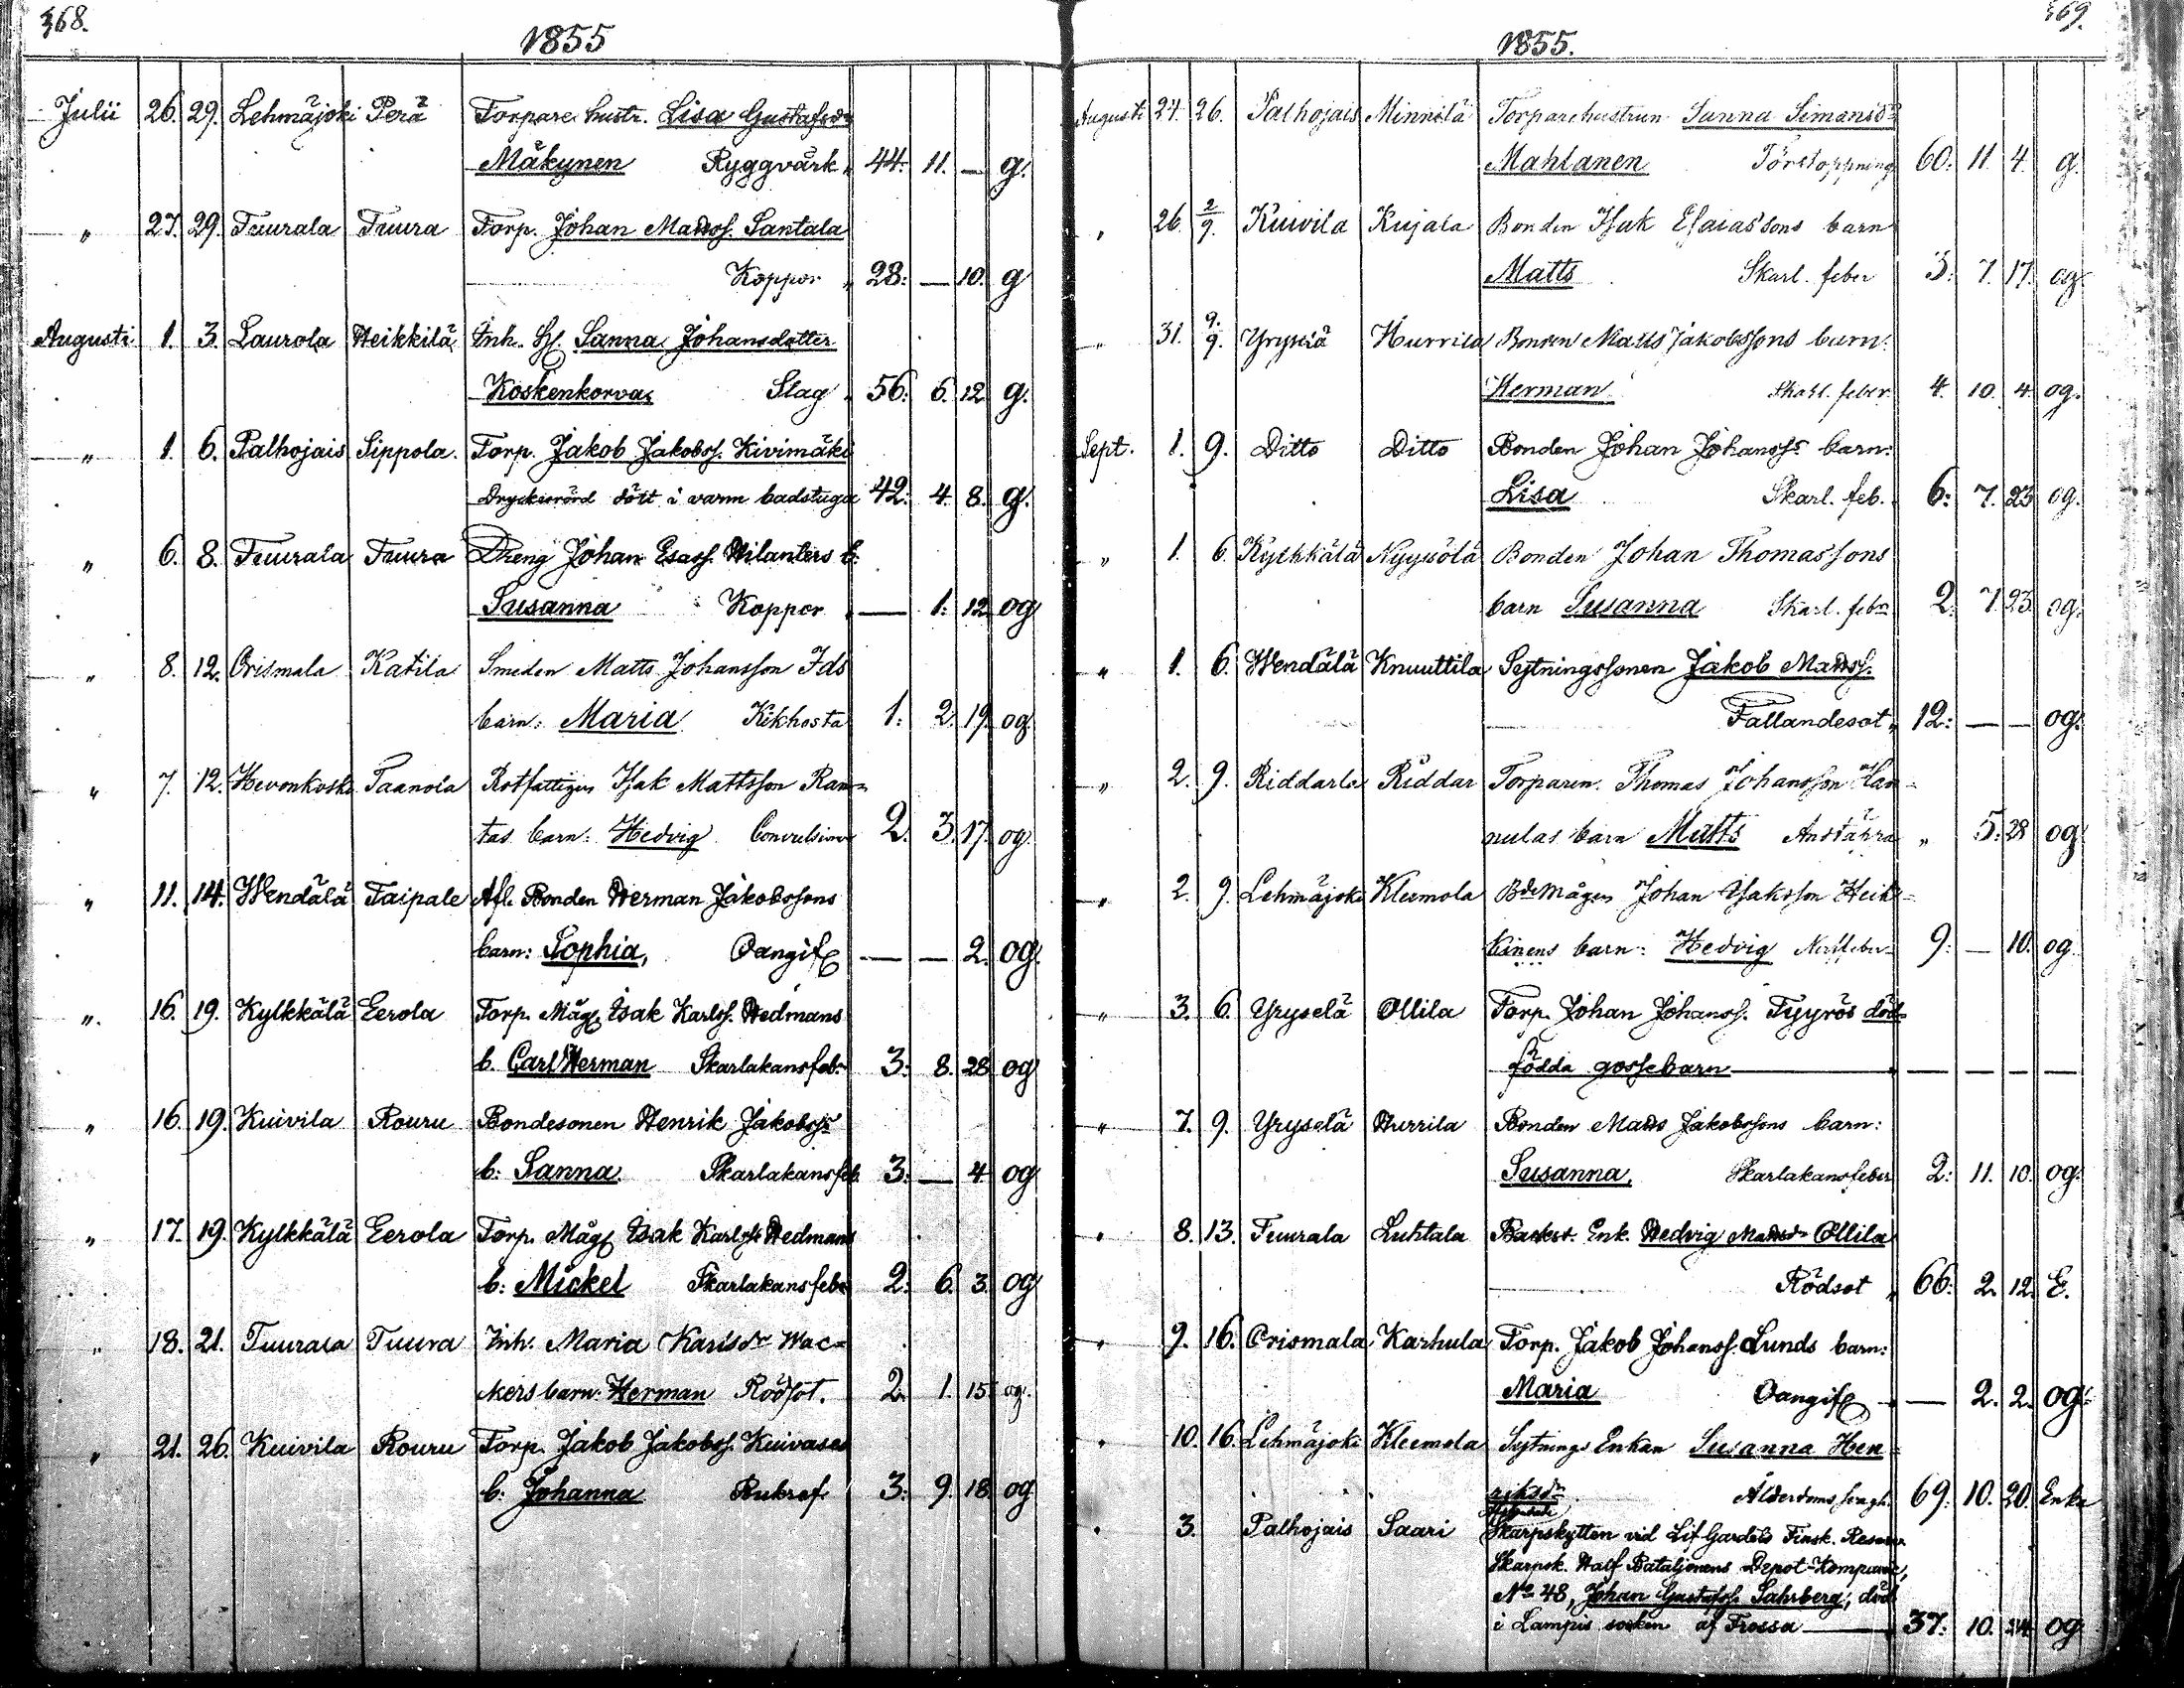 368.
1855
Julii 26. 29. Lehmäjoki Perä Torpare hustr. Lisa Gustafsdr
Mäkynen Ryggvärk „ 44: 11. — g.
„ 27. 29. Tuurala Tuura Torp. Johan Mattss. Santala
Koppor „ 28: — 10. g
Augusti 1. 3. Laurola Heikkilä Inh. Hj. Sanna Johansdotter
Koskenkorva Slag „ 56: 6. 12 g.
„ 1. 6. Palhojais Sippola. Torp. Jakob Jakobss. Kivimäki
dött i varm badstuga 42: 4. 8. g.
„ 6. 8. Tuurala Tuura Dreng Johan Esass. Wilanters b:
Susanna Koppor — 1: 12 og
„ 8. 12. Orismala Katila Smeden Matts Johansson Ids
barn: Maria Kikhosta 1: 2. 19. og
„ 7. 12. Hevonkoski Taanola Rotfattigen Isak Mattsson Ran-
tas barn: Hedvig Convulsioner 2. 3. 17. og.
„ 11. 14. Wendälä Taipale Afl. Bonden Herman Jakobssons
barn: Sophia, Oangif. — — 2. og.
„ 16. 19. Kylkkälä Eerola Torp. Måg Isak Karlss. Hedmans
b. Carl Herman Skarlakansfebr 3: 8. 28. og
„ 16. 19. Kuivila Rouru Bondesonen Henrik Jakobss
b: Sanna Skarlakansfeb. 3: — 4 og
„ 17. 19. Kylkkälä Eerola Torp. Måg Isak Karlss Hedmans
b: Mickel Skarlakansfebr 2: 6. 3. og
„ 18. 21. Tuurala Tuura Inh. Maria Karlsdr Wac-
kers barn: Herman Rödsot. 2 1. 15 og.
„ 21. 26. Kuivila Rouru Torp. Jakob Jakobss. Kuivases
b: Johanna 3: 9. 18. og
369.
1855.
Augusti 24. 26. Palhojais Minnilä Torparehustrun Sanna Simansdr
Mahlanen Förstoppning 60: 11 4. g.
„ 26. 2/9. Kuivila Kujala Bonden Isak Esaiassons barn
Matts Skarl. feber 3: 7. 17. og
„ 31. 9/9. Yryselä Hurrila Bonden Matts Jakobssons barn:
Herman Skarl. feber 4. 10. 4. og.
Sept. 1. 9. Ditto Ditto Bonden Johan Johanss barn:
Lisa Skarl. feb. 6: 7. 23 og.
„ 1. 6. Kylkkälä Nyysölä Bonden Johan Thomassons
barn Susanna Skarl. febr 2. 7. 23. og.
„ 1. 6. Wendälä Knuuttila Sytningssonen Jakob Mattss.
Fallandesot „ 12: — — og.
„ 2. 9. Riddarla Riddar Torparen Thomas Johansson Han-
nulas barn Matts Andtäppa „ 5. 28 og
„ 2. 9. Lehmäjoki Kleemola Bde Mågen Johan Isaksson Heik-
kinens barn: Hedvig Nerffeber 9: — 10. og
„ 3. 6. Yryselä Ollila Torp. Johan Johanss. Tyyrös död-
födda gossebarn — — — —
„ 7. 9. Yryselä Hurrila Bonden Matts Jakobssons barn:
Susanna, Skarlakansfeber 2: 11. 10. og.
„ 8. 13. Tuurala Luhtala Backst. Enk. Hedvig Mattsdr Ollila
Rödsot „ 66: 2. 12. E.
„ 9. 16. Orismala Karhula Torp. Jakob Johanss. Lunds barn:
Maria Oangif. — 2. 2. og
„ 10. 16. Lehmäjoki Kleemola Sytnings Enkan Susanna Hen-
riksdr Ålderdoms svagh. 69: 10. 20. Enka
„ 3. Palhojais Saari Skarpskytten vid Lif Gardets Finsk. Reserv
Skarpsk. Half Bataljonens Depot-Kompanie,
No 48, Johan Gustafss. Sahrberg, död
i Lampis socken af Frossa 37: 10. 24 og